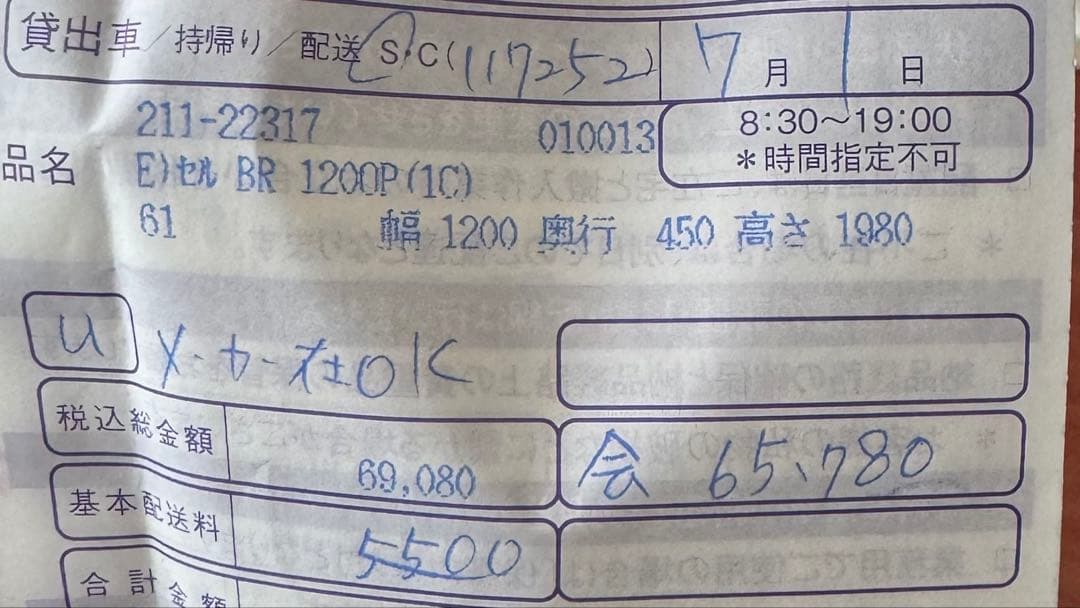 貸出車／持帰り／配送 S・C(117252) 7月1日
211-22317 010013 8:30～19:00
＊時間指定不可
品名 E)セル BR 1200P(1C)
61 幅 1200 奥行 450 高さ 1980
U メーカー在OK
税込総金額 69,080 会 65,780
基本配送料 5500
合計金額